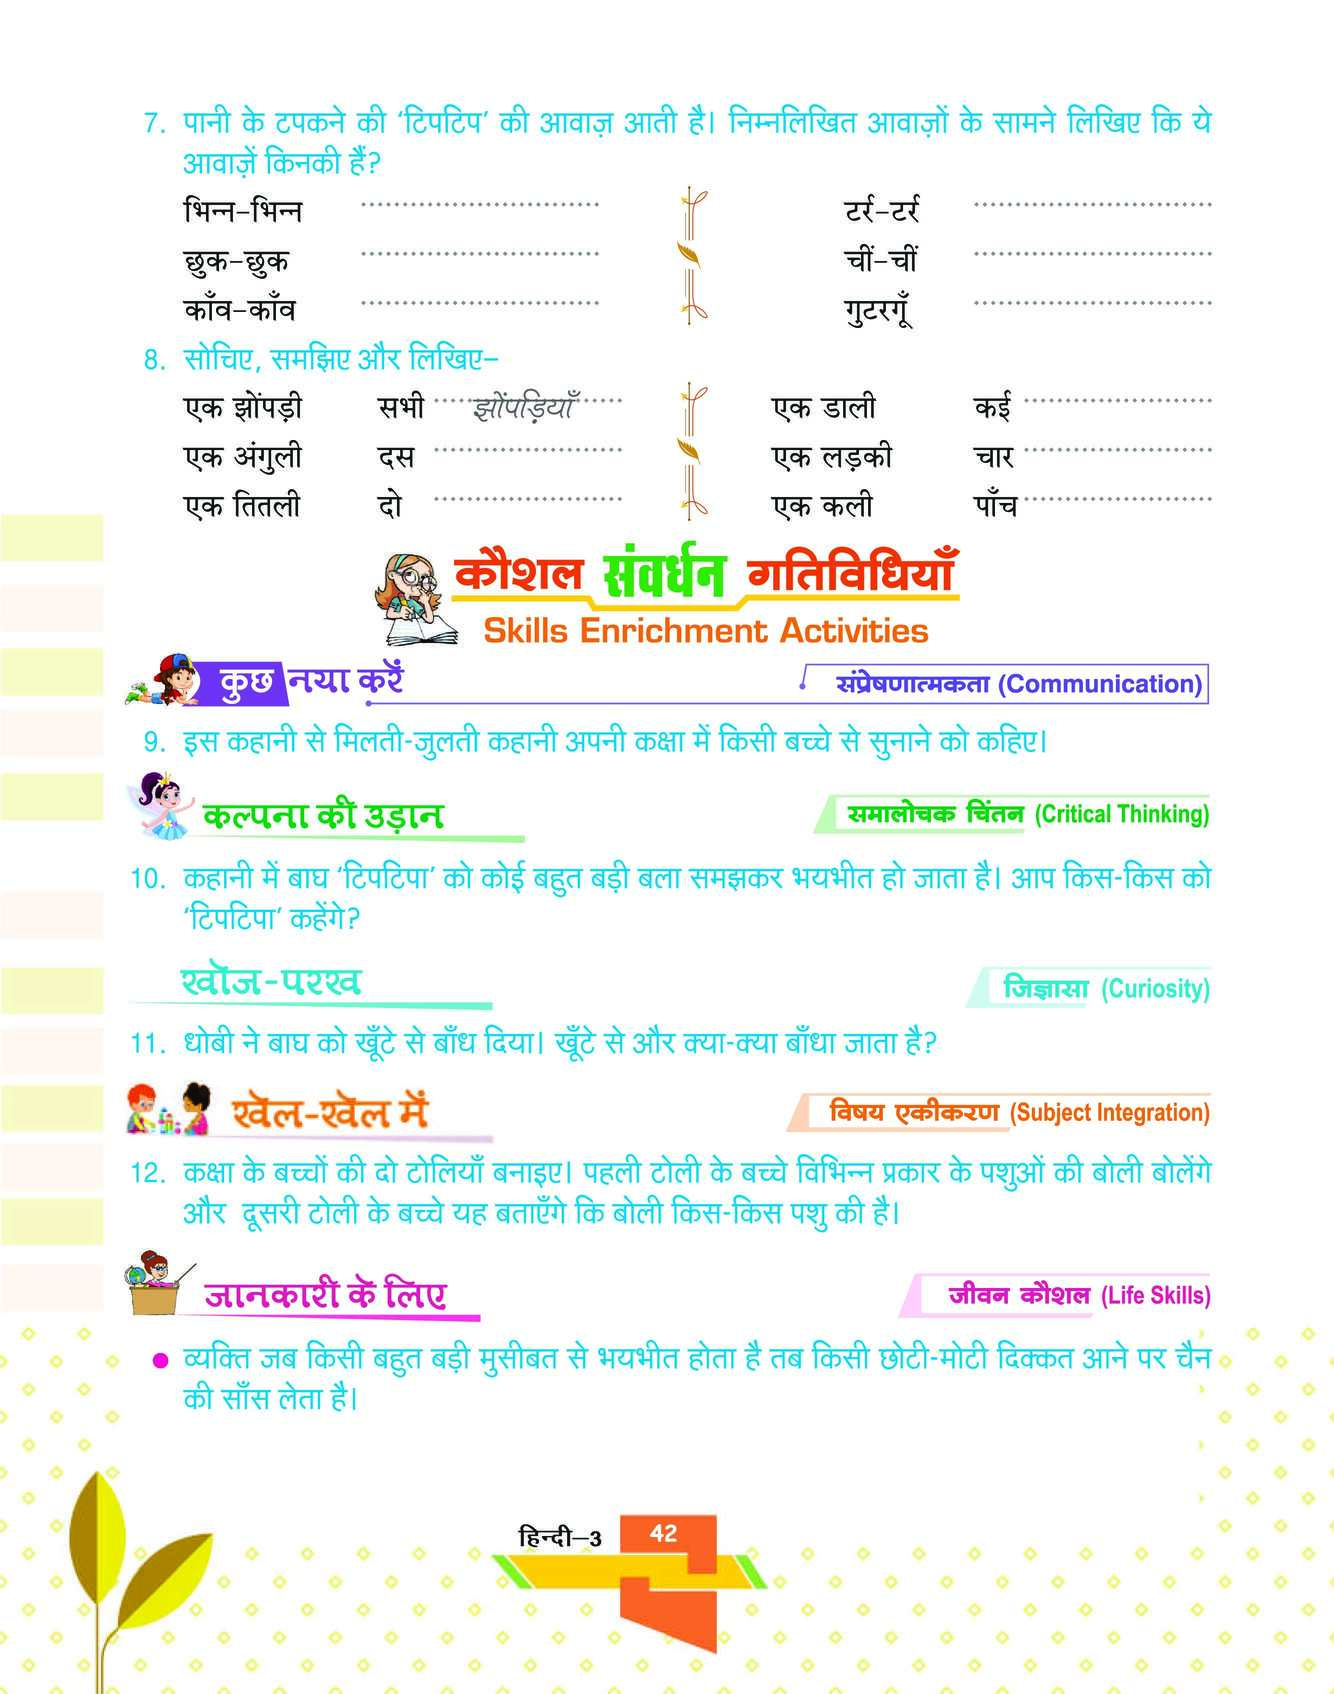 7. पानी के टपकने की ‘टिपटिप’ की आवाज़ आती है। निम्नलिखित आवाज़ों के सामने लिखिए कि ये
आवाज़ें किनकी हैं?
भिन्न–भिन्न टर्र–टर्र
छुक–छुक चीं–चीं
काँव–काँव गुटरगूँ
8. सोचिए, समझिए और लिखिए–
एक झोंपड़ी सभी झोंपड़ियाँ एक डाली कई
एक अंगुली दस एक लड़की चार
एक तितली दो एक कली पाँच
कौशल संवर्धन गतिविधियाँ
Skills Enrichment Activities
कुछ नया करें संप्रेषणात्मकता (Communication)
9. इस कहानी से मिलती-जुलती कहानी अपनी कक्षा में किसी बच्चे से सुनाने को कहिए।
कल्पना की उड़ान समालोचक चिंतन (Critical Thinking)
10. कहानी में बाघ ‘टिपटिपा’ को कोई बहुत बड़ी बला समझकर भयभीत हो जाता है। आप किस-किस को
‘टिपटिपा’ कहेंगे?
खोज-परख जिज्ञासा (Curiosity)
11. धोबी ने बाघ को खूँटे से बाँध दिया। खूँटे से और क्या-क्या बाँधा जाता है?
खेल-खेल में विषय एकीकरण (Subject Integration)
12. कक्षा के बच्चों की दो टोलियाँ बनाइए। पहली टोली के बच्चे विभिन्न प्रकार के पशुओं की बोली बोलेंगे
और दूसरी टोली के बच्चे यह बताएँगे कि बोली किस-किस पशु की है।
जानकारी के लिए जीवन कौशल (Life Skills)
● व्यक्ति जब किसी बहुत बड़ी मुसीबत से भयभीत होता है तब किसी छोटी-मोटी दिक्कत आने पर चैन
की साँस लेता है।
हिन्दी–3 42